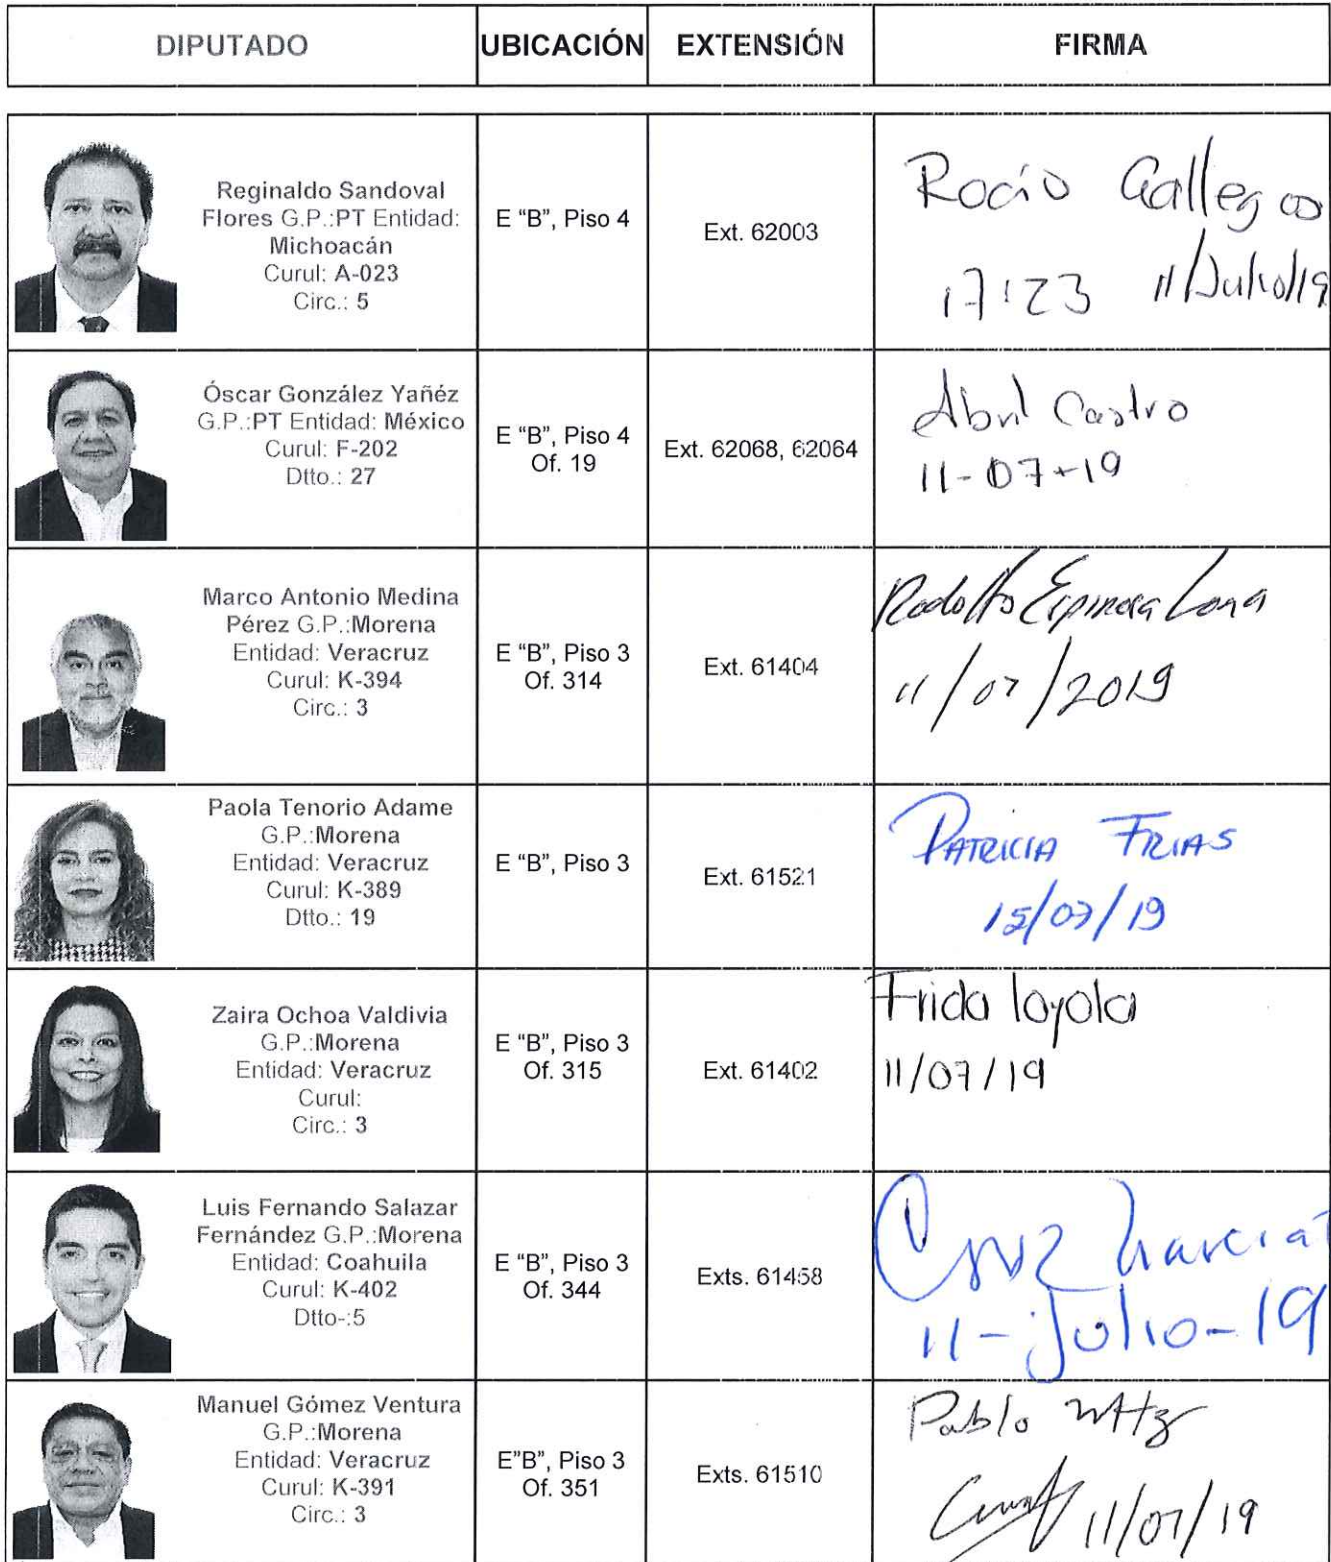 DIPUTADO UBICACIÓN EXTENSIÓN FIRMA
Reginaldo Sandoval
Flores G.P.:PT Entidad:
Michoacán
Curul: A-023
Circ.: 5
E "B", Piso 4
Ext. 62003
Rocío Gallegos
17:23 11/Julio/19
Óscar González Yañéz
G.P.:PT Entidad: México
Curul: F-202
Dtto.: 27
E "B", Piso 4
Of. 19
Ext. 62068, 62064
Abril Castro
11-07-19
Marco Antonio Medina
Pérez G.P.:Morena
Entidad: Veracruz
Curul: K-394
Circ.: 3
E "B", Piso 3
Of. 314
Ext. 61404
Rodolfo Espinosa Lona
11/07/2019
Paola Tenorio Adame
G.P.:Morena
Entidad: Veracruz
Curul: K-389
Dtto.: 19
E "B", Piso 3
Ext. 61521
PATRICIA FRIAS
15/07/19
Zaira Ochoa Valdivia
G.P.:Morena
Entidad: Veracruz
Curul:
Circ.: 3
E "B", Piso 3
Of. 315
Ext. 61402
Frida loyola
11/07/19
Luis Fernando Salazar
Fernández G.P.:Morena
Entidad: Coahuila
Curul: K-402
Dtto-:5
E "B", Piso 3
Of. 344
Exts. 61458
Cruz
11-julio-19
Manuel Gómez Ventura
G.P.:Morena
Entidad: Veracruz
Curul: K-391
Circ.: 3
E"B", Piso 3
Of. 351
Exts. 61510
Pablo Mtz
11/07/19